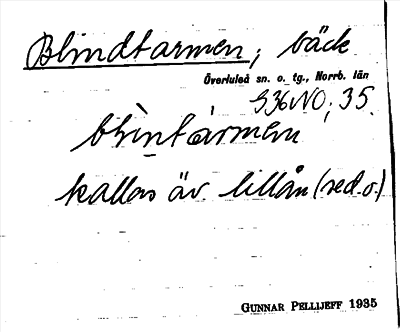 Blindtarmen; bäck
Överluleå sn. o. tg., Norrb. län
S36NO; 35.
blìntármen
kallas äv. lillån (red. o.)
GUNNAR PELLIJEFF 1935